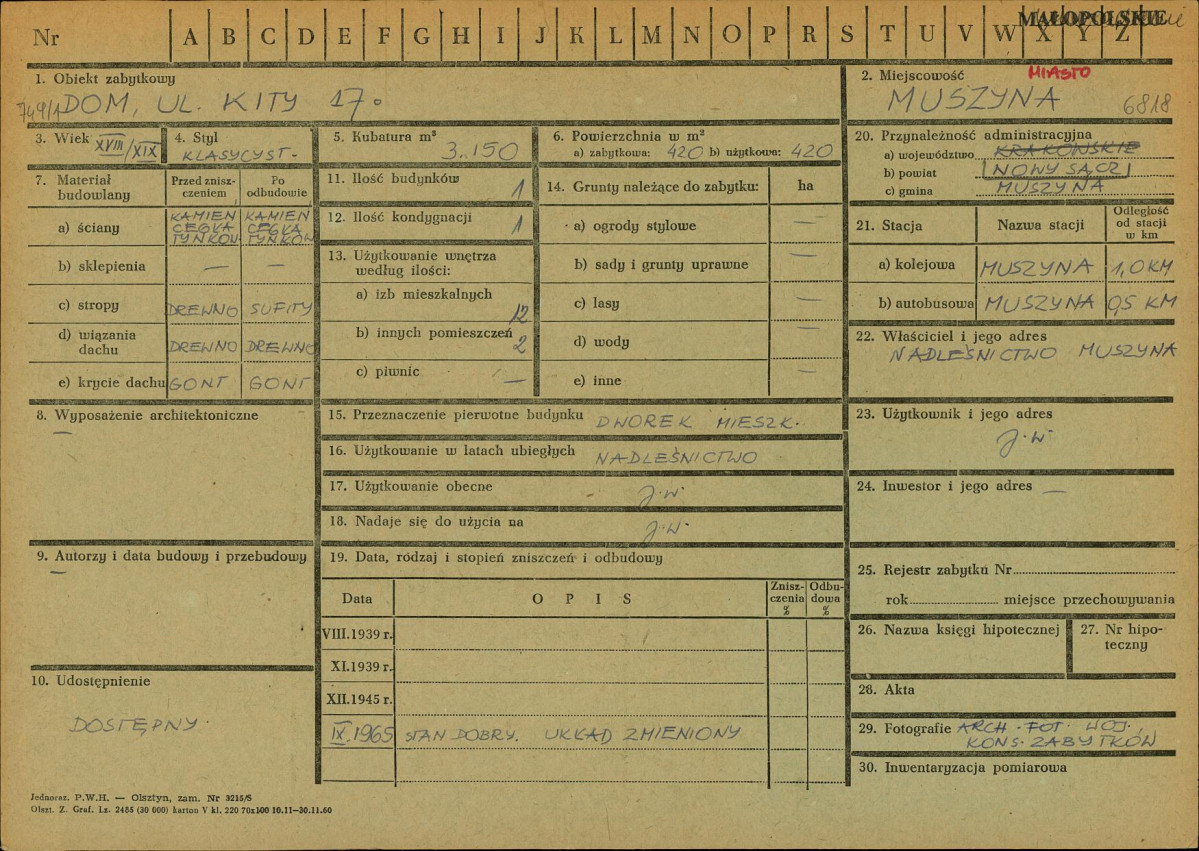 Nr A B C D E F G H I J K L M N O P R S T U V W X Y Z
MAŁOPOLSKIE
1. Obiekt zabytkowy
DOM, UL. KITY 17.
2. Miejscowość MIASTO
MUSZYNA 6818
3. Wiek XVIII/XIX
4. Styl
KLASYCYST-
5. Kubatura m³
3.150
6. Powierzchnia w m²
a) zabytkowa: 420 b) użytkowa: 420
7. Materiał budowlany
Przed znisz-
czeniem
Po
odbudowie
a) ściany
KAMIEŃ
CEGŁA
TYNKOW.
KAMIEŃ
CEGŁA
TYNKOW
b) sklepienia — —
c) stropy DREWNO SUFITY
d) wiązania
dachu DREWNO DREWNO
e) krycie dachu GONT GONT
8. Wyposażenie architektoniczne
—
9. Autorzy i data budowy i przebudowy
—
10. Udostępnienie
DOSTĘPNY.
11. Ilość budynków 1
12. Ilość kondygnacji 1
13. Użytkowanie wnętrza
według ilości:
a) izb mieszkalnych 12
b) innych pomieszczeń 2
c) piwnic —
14. Grunty należące do zabytku: ha
a) ogrody stylowe —
b) sady i grunty uprawne —
c) lasy —
d) wody —
e) inne —
15. Przeznaczenie pierwotne budynku DWOREK MIESZK.
16. Użytkowanie w latach ubiegłych NADLEŚNICTWO
17. Użytkowanie obecne - J.W.
18. Nadaje się do użycia na J.W.
19. Data, rodzaj i stopień zniszczeń i odbudowy
Data O P I S
Znisz-
czenia
%
Odbu-
dowa
%
VIII.1939 r.
XI.1939 r.
XII.1945 r.
IX.1965 STAN DOBRY. UKŁAD ZMIENIONY
20. Przynależność administracyjna
a) województwo KRAKOWSKIE
b) powiat NOWY SĄCZ
c) gmina MUSZYNA
21. Stacja Nazwa stacji
Odległość
od stacji
w km
a) kolejowa MUSZYNA 1,0 KM
b) autobusowa MUSZYNA 0,5 KM
22. Właściciel i jego adres
NADLEŚNICTWO MUSZYNA
23. Użytkownik i jego adres
J.W.
24. Inwestor i jego adres —
25. Rejestr zabytku Nr
rok miejsce przechowywania
26. Nazwa księgi hipotecznej
27. Nr hipo-
teczny
28. Akta
29. Fotografie ARCH. FOT. WOJ.
KONS. ZABYTKÓW
30. Inwentaryzacja pomiarowa
Jednoraz. P.W.H. — Olsztyn, zam. Nr 3215/S
Olszt. Z. Graf. Lz. 2485 (30 000) karton V kl. 220 70x100 10.11—30.11.60